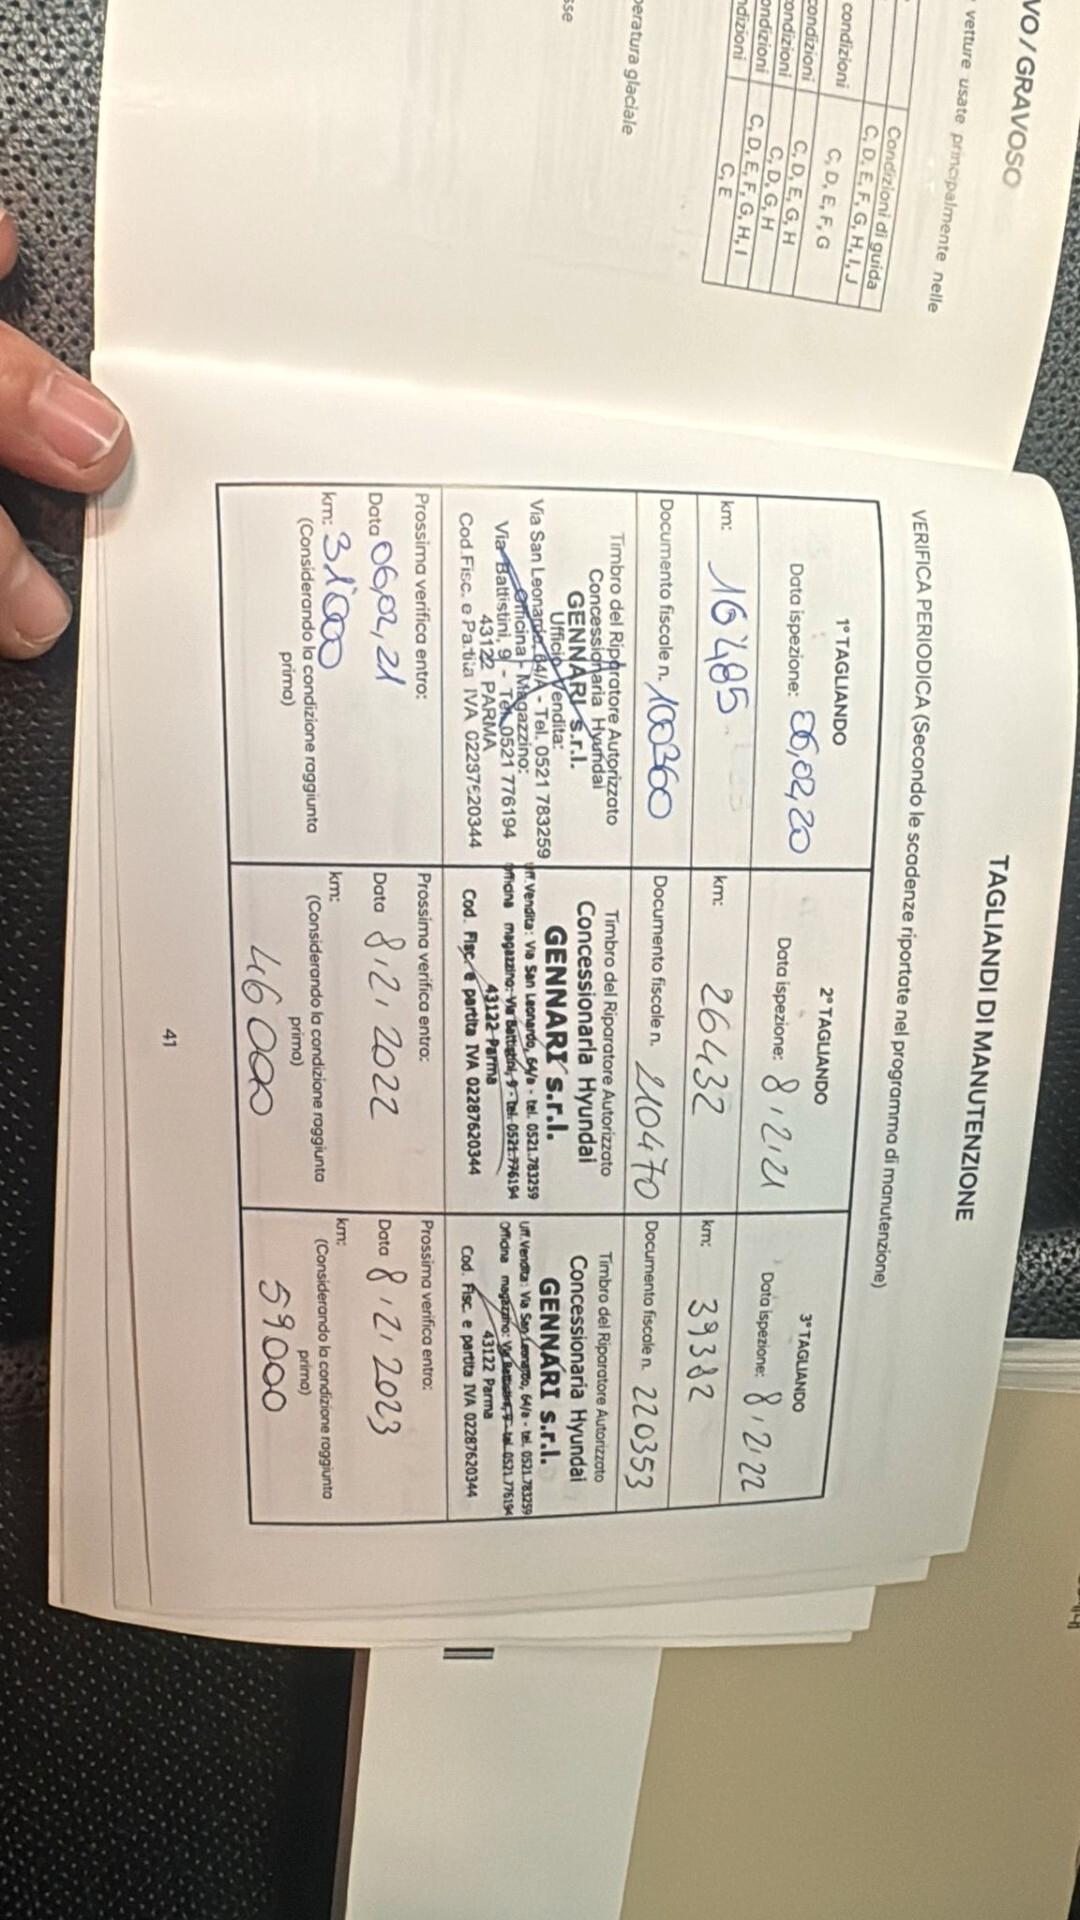 VO / GRAVOSO
vetture usate principalmente nelle
Condizioni di guida
C, D, E, F, G, H, I, J
condizioni C, D, E, F, G
condizioni C, D, E, G, H
ondizioni C, D, G, H
ondizioni C, D, E, F, G, H, I
ndizioni C, E
peratura glaciale
sse
TAGLIANDI DI MANUTENZIONE
VERIFICA PERIODICA (Secondo le scadenze riportate nel programma di manutenzione)
1° TAGLIANDO
Data ispezione: 06,02,20
km: 16485
Documento fiscale n. 100360
Timbro del Riparatore Autorizzato
Concessionaria Hyundai
GENNARI s.r.l.
Ufficio Vendita:
Via San Leonardo, 64/A - Tel. 0521 783259
Officina - Magazzino:
Via Battistini, 9 - Tel. 0521 776194
43122 PARMA
Cod.Fisc. e Partita IVA 02287620344
Prossima verifica entro:
Data 06,02,21
km: 31'000
(Considerando la condizione raggiunta
prima)
2° TAGLIANDO
Data ispezione: 8,2,21
km: 26432
Documento fiscale n. 210470
Timbro del Riparatore Autorizzato
Concessionaria Hyundai
GENNARI s.r.l.
uff.Vendita: Via San Leonardo, 64/a - tel. 0521.783259
officina magazzino: Via Battistini, 9 - tel. 0521.776194
43122 Parma
Cod. Fisc. e partita IVA 02287620344
Prossima verifica entro:
Data 8,2,2022
km:
(Considerando la condizione raggiunta
prima)
46000
3° TAGLIANDO
Data ispezione: 8,2,22
km: 39382
Documento fiscale n. 220353
Timbro del Riparatore Autorizzato
Concessionaria Hyundai
GENNARI s.r.l.
uff.Vendita: Via San Leonardo, 64/a - tel. 0521.783259
officina magazzino: Via Battistini, 9 - tel. 0521.776194
43122 Parma
Cod. Fisc. e partita IVA 02287620344
Prossima verifica entro:
Data 8,2,2023
km:
(Considerando la condizione raggiunta
prima)
59000
41